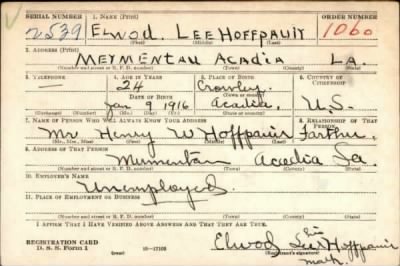 SERIAL NUMBER 1. NAME (Print) ORDER NUMBER
2539 ELWOD. LEE HOFFPAUIT 1060
(First) (Middle) (Last)
2. ADDRESS (Print)
MEYMENTAU ACADIA LA.
(Number and street or R. F. D. number) (Town) (County) (State)
3. TELEPHONE 4. AGE IN YEARS 5. PLACE OF BIRTH 6. COUNTRY OF CITIZENSHIP
— 24 Crowley
DATE OF BIRTH (Town or county)
Jan 9 1916 Acadia. U.S.
(Exchange) (Number) (Mo.) (Day) (Yr.) (State or country)
7. NAME OF PERSON WHO WILL ALWAYS KNOW YOUR ADDRESS 8. RELATIONSHIP OF THAT PERSON
Mr Henry W Hoffpauir Father.
(Mr., Mrs., Miss) (First) (Middle) (Last)
9. ADDRESS OF THAT PERSON
Mermentau Acadia La
(Number and street or R. F. D. number) (Town) (County) (State)
10. EMPLOYER'S NAME
Unemployed.
11. PLACE OF EMPLOYMENT OR BUSINESS
(Number and street or R. F. D. number) (Town) (County) (State)
I AFFIRM THAT I HAVE VERIFIED ABOVE ANSWERS AND THAT THEY ARE TRUE.
his
REGISTRATION CARD Elwod Lee Hoffpauir
D. S. S. Form 1 16—17105 (Registrant's signature)
mark